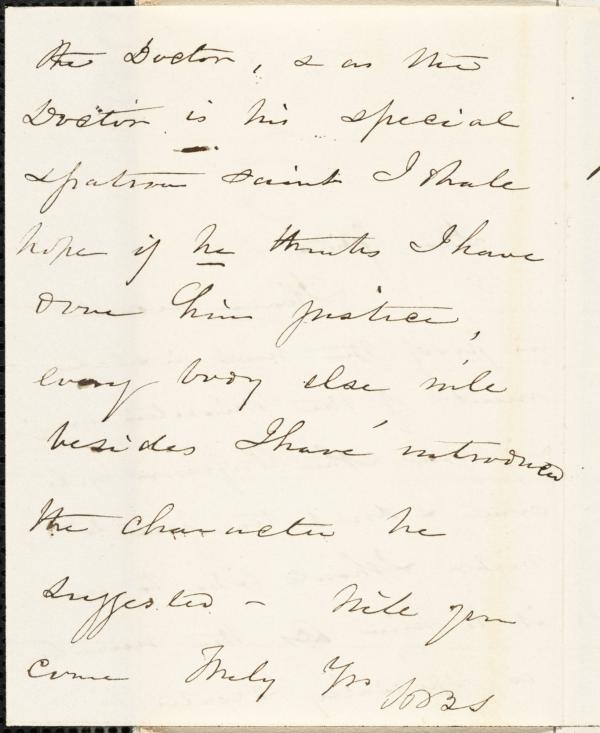 the Doctor, & as the
Doctor is his special
patron saint I shale
hope if he thinks I have
done him justice,
every body else wile
besides I have introduced
the character he
suggested - Wile you
come Truly Yrs